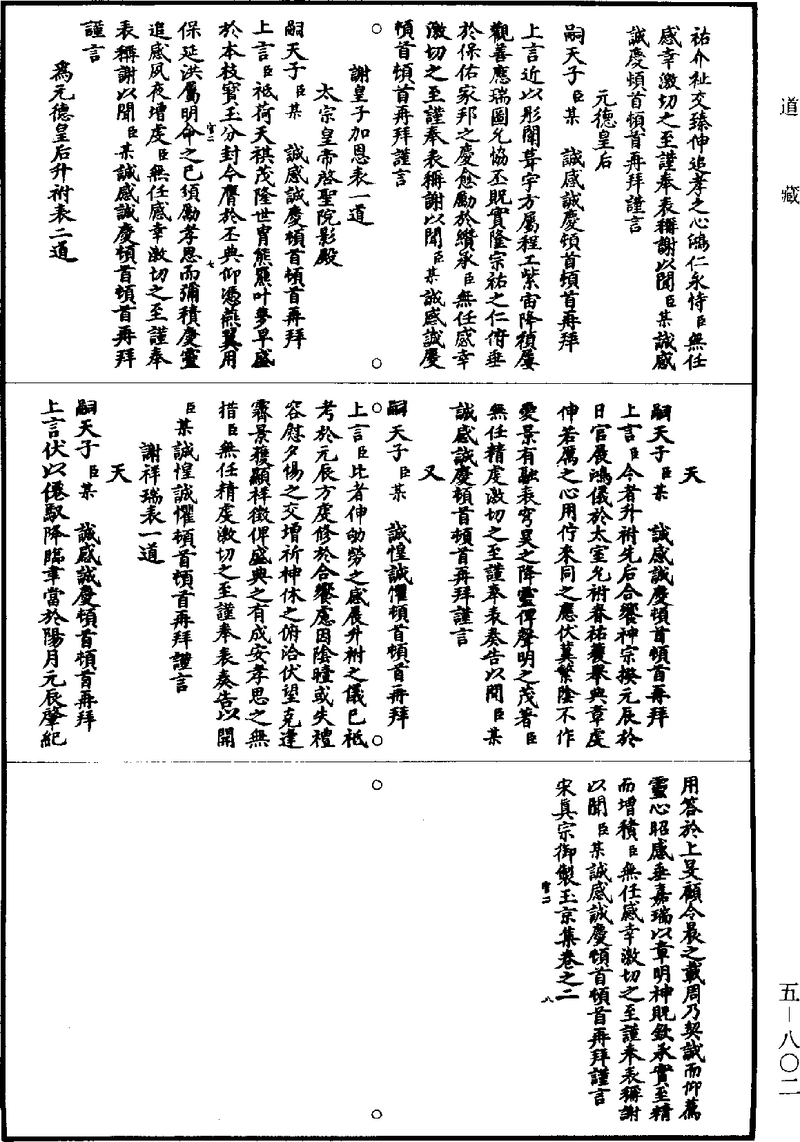 道藏
祐介祉交臻伸追孝之心鴻仁永恃臣無任
感幸激切之至謹奉表稱謝以聞臣某誠感
誠慶頓首頓首再拜謹言
元德皇后
嗣天子臣某 誠感誠慶頓首頓首再拜
上言近以彤闈葺宇方屬程工紫宙降禎屢
觀善應瑞圖允協丕貺實隆宗祐之仁俯垂
於保佑家邦之慶愈勵於纘承臣無任感幸
激切之至謹奉表稱謝以聞臣某誠感誠慶
頓首頓首再拜謹言
謝皇子加恩表一道
太宗皇帝啓聖院影殿
嗣天子臣某 誠感誠慶頓首頓首再拜
上言臣祗荷天祺茂隆世胄熊羆叶夢早盛
於本枝寶玉分封今膺於丕典仰憑燕翼用
保延洪屬明命之已頒勵孝思而彌積慶靈
追感夙夜增虔臣無任感幸激切之至謹奉
表稱謝以聞臣某誠感誠慶頓首頓首再拜
謹言
爲元德皇后升祔表二道
天
嗣天子臣某 誠感誠慶頓首頓首再拜
上言臣今者升祔先后合饗神宗揆元辰於
日官展鴻儀於太室允祔眷祐獲舉典章虔
伸若厲之心用佇來同之應伏冀繁陰不作
愛景有融表穹昊之降靈俾聲明之茂著臣
無任精虔激切之至謹奉表奏告以聞臣某
誠感誠慶頓首頓首再拜謹言
又
嗣天子臣某 誠惶誠懼頓首頓首再拜
上言臣比者伸劬勞之感展升祔之儀已祗
考於元辰方虔修於合饗慮因陰曀或失禮
容慰夕惕之交增祈神休之俯洽伏望克逢
霽景獲顯祥徵俾盛典之有成安孝思之無
措臣無任精虔激切之至謹奉表奏告以聞
臣某誠惶誠懼頓首頓首再拜謹言
謝祥瑞表一道
天
嗣天子臣某 誠感誠慶頓首頓首再拜
上言伏以僊馭降臨聿當於陽月元辰肇紀
用答於上旻顧今晨之載周乃契誠而仰薦
靈心昭感垂嘉瑞以章明神貺欽承實至精
而增積臣無任感幸激切之至謹奉表稱謝
以聞臣某誠感誠慶頓首頓首再拜謹言
宋真宗御製玉京集卷之二
五—八〇二